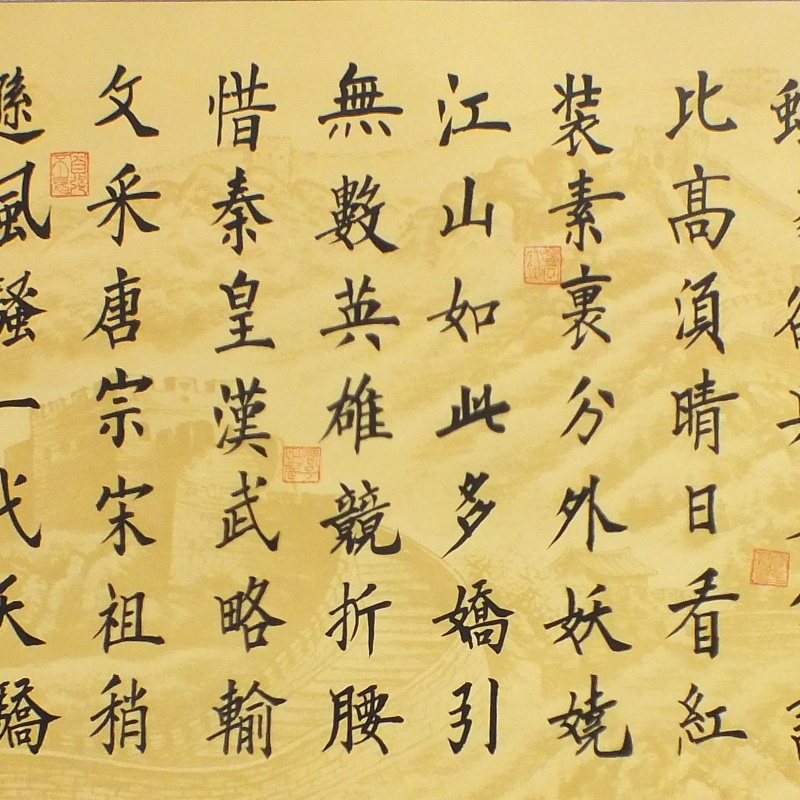 比髙須晴日看紅
装素裏分外妖嬈
江山如此多嬌引
無數英雄競折腰
惜秦皇漢武略輸
文采唐宗宋祖稍
遜風騷一代天驕